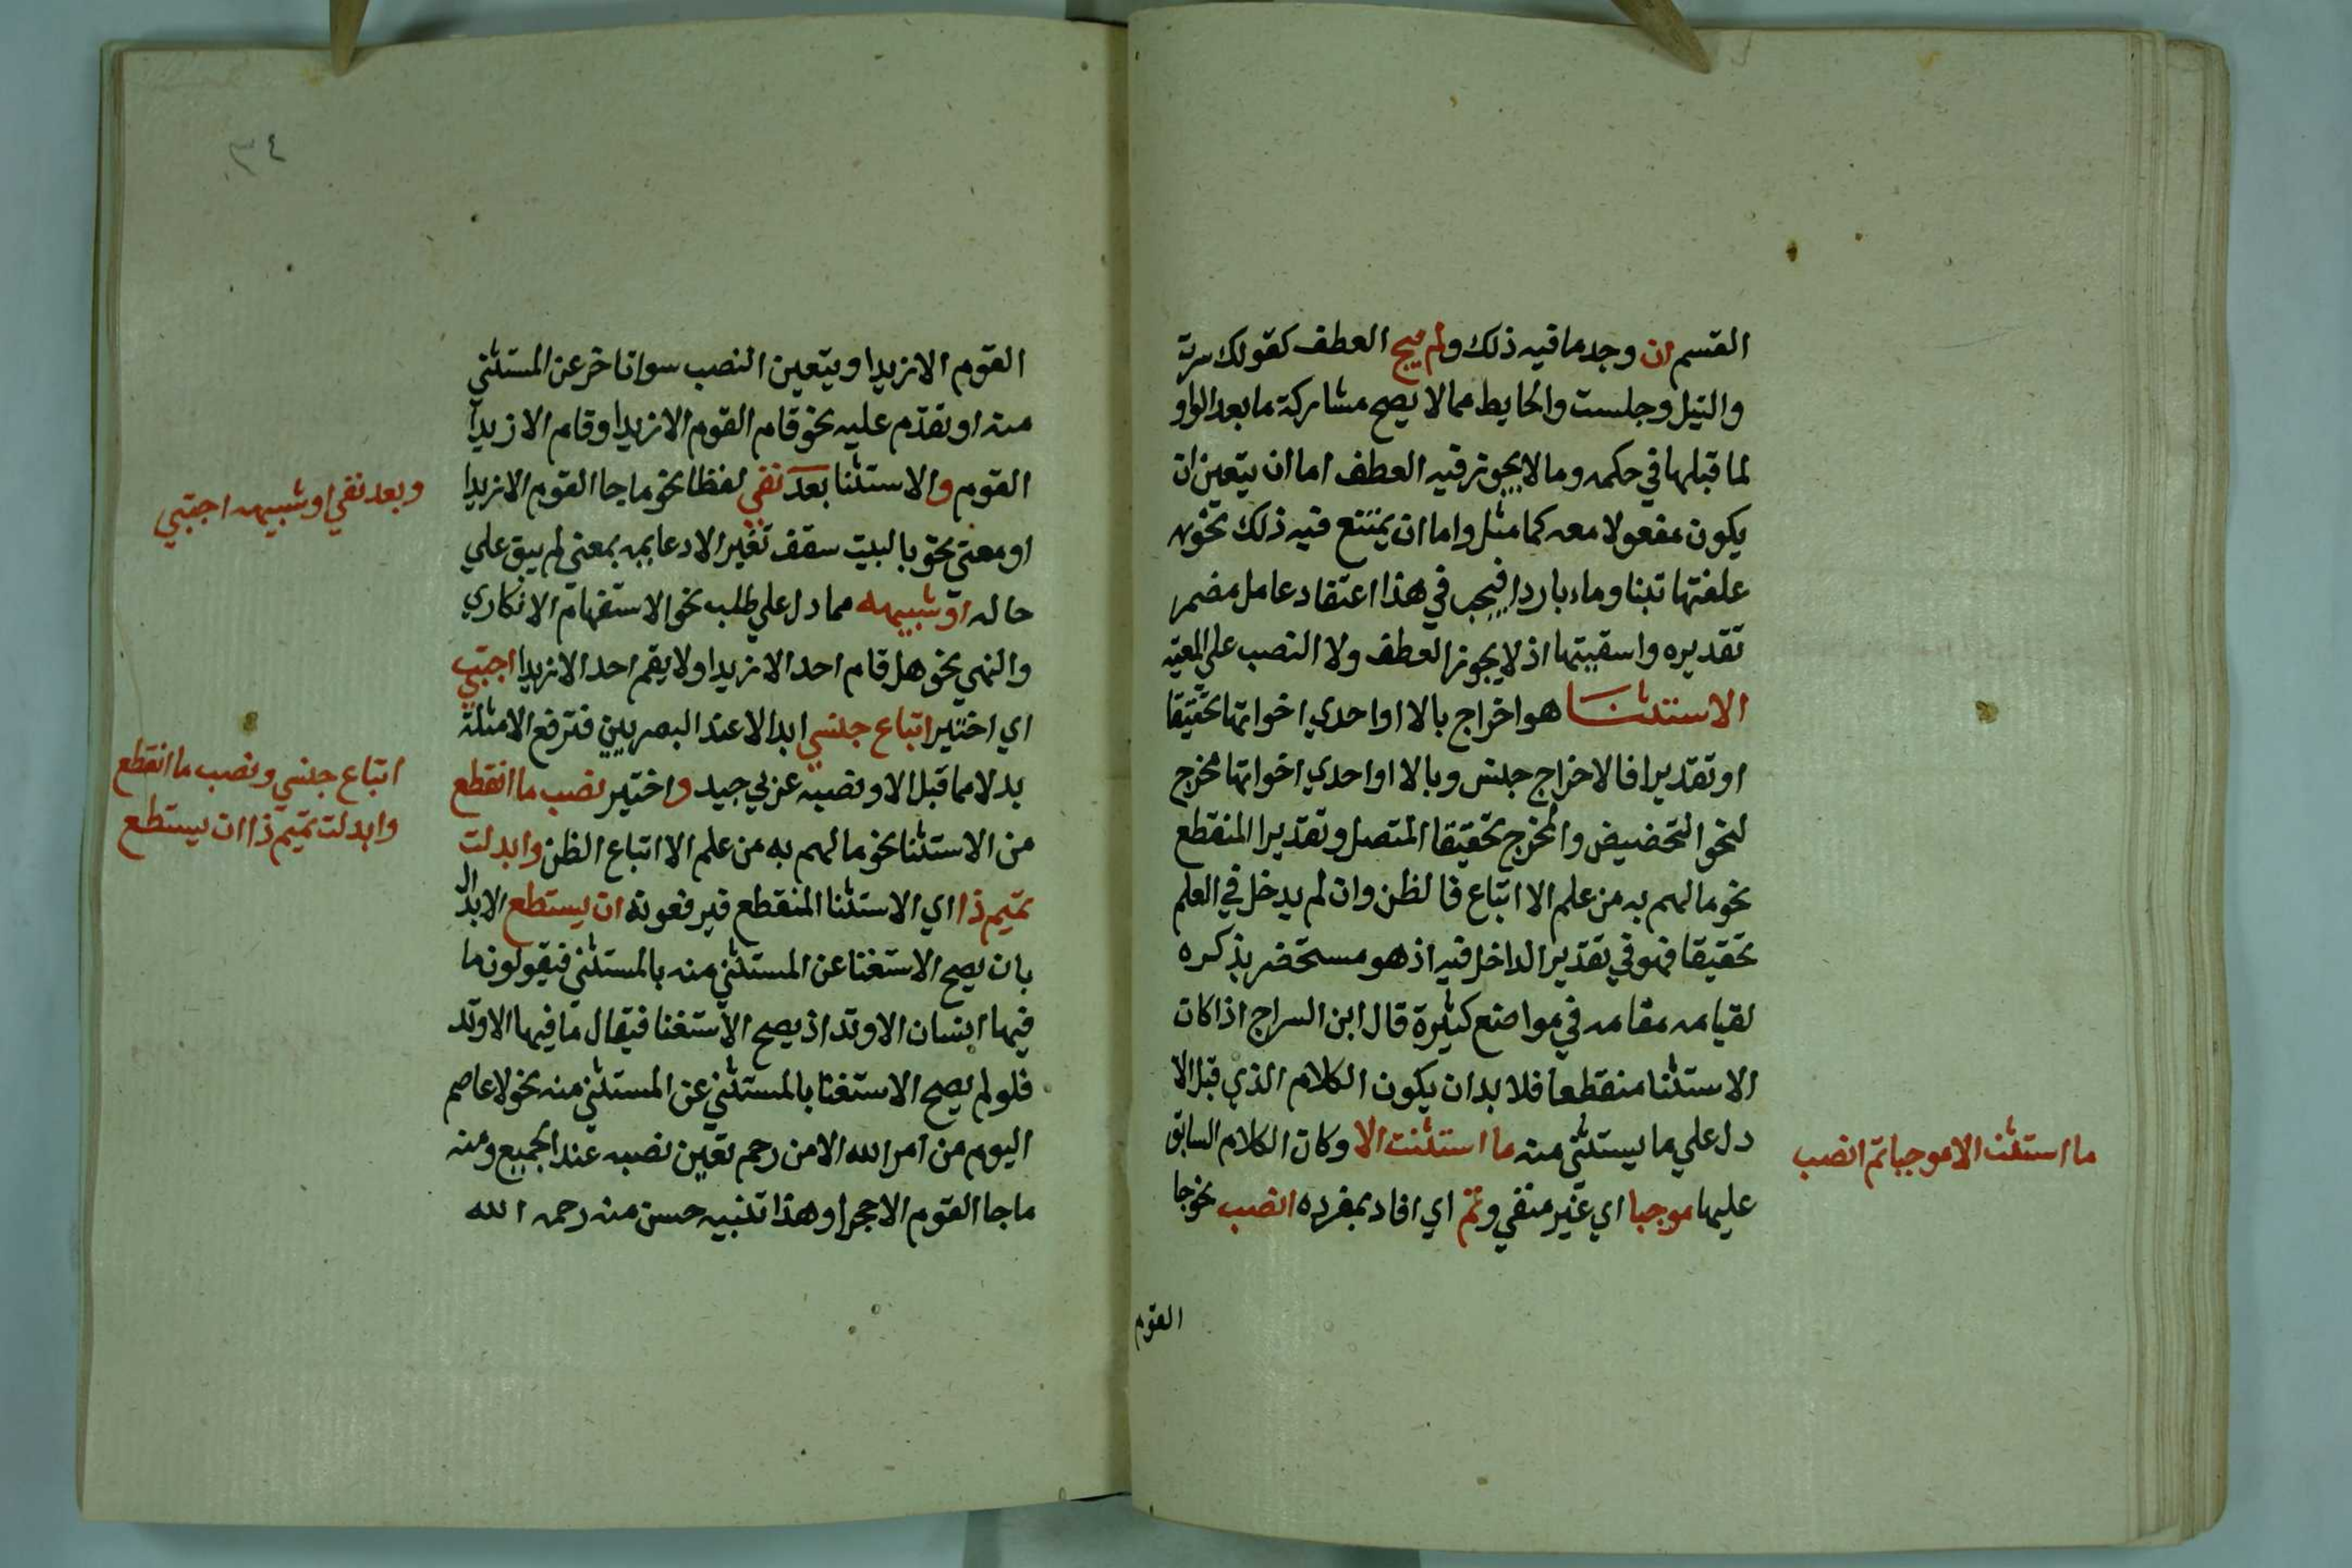 القسم ان وجد ما فيه ذلك ولم يبح العطف كقولك سرت
والنيل وجلست والحايط مما لا يصح مشاركة ما بعد الواو
لما قبلها في حكمه وما لا يجوز فيه العطف اما ان يتعين ان
يكون مفعولا معه كما مثل واما ان يمتنع فيه ذلك نحو
علفتها تبنا وماء باردا فيجب في هذا اعتقاد عامل مضمر
تقديره واسقيتها اذ لا يجوز العطف ولا النصب علي المعيه
الاستثنا هو اخراج بالا او احدي اخواتها تحقيقا
او تقديرا فالاخراج جنس وبالا او احدي اخواتها مخرج
لنحو التخصيص والمخرج تحقيقا المتصل وتقديرا المنقطع
نحو ما لهم به من علم الا اتباع فالظن وان لم يدخل في العلم
تحقيقا فهو في تقدير الداخل فيه اذ هو مستحضر بذكره
لقيامه مقامه في مواضع كثيرة قال ابن السراج اذا كان
الاستثنا منقطعا فلا بد ان يكون الكلام الذي قبل الا
دل علي ما يستثني منه ما استثنت الا وكان الكلام السابق
عليها موجبا اي غير منفي وتم اي افاد بمفرده انصب نحو جا
ما استثنت الا موجبا تم انصب
القوم
٣٤
القوم الا زيدا ويتعين النصب سوا تاخر عن المستثني
منه او تقدم عليه نحو قام القوم الا زيدا وقام الا زيدا
القوم والاستثنا بعد نفي لفظا نحو ما جا القوم الا زيدا
او معني نحو بالبيت سقف تغير الا دعايمه بمعني لم يبق علي
حاله او شبيهه مما دل علي طلب نحو الاستفهام الانكاري
والنهي نحو هل قام احد الا زيدا ولا يقم احد الا زيدا اجتبي
اي اختير اتباع جنسي ابدالا عند البصريين فترفع الامثلة
بدلا مما قبل الا ونصبه عربي جيد واختير نصب ما انقطع
من الاستثنا نحو ما لهم به من علم الا اتباع الظن وابدلت
تميم ذا اي الاستثنا المنقطع فيرفعونه ان يستطع الابدال
بان يصح الاستغنا عن المستثني منه بالمستثني فيقولون ما
فيها انسان الا وتد اذ يصح الاستغنا فيقال ما فيها الا وتد
فلو لم يصح الاستغنا بالمستثني عن المستثني منه نحو لا عاصم
اليوم من امر الله الا من رحم تعين نصبه عند الجميع ومنه
ما جا القوم الا حجرا وهذا تنبيه حسن منه رحمه الله
وبعد نفي او شبيهه اجتبي
اتباع جنسي ونصب ما انقطع
وابدلت تميم ذا ان يستطع